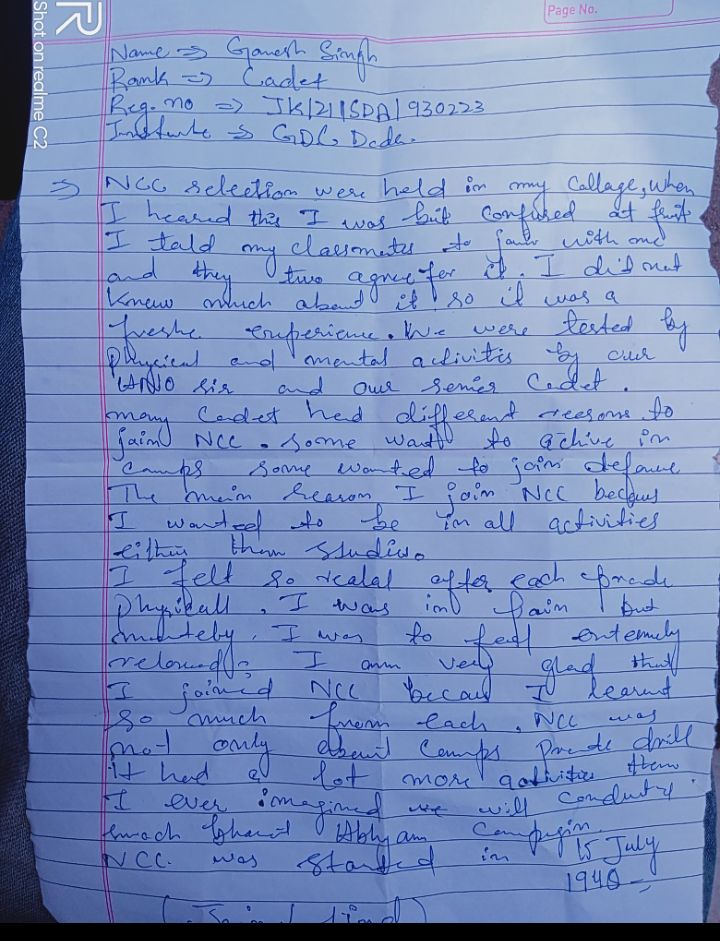 Page No.
R
Shot on realme C2
Name => Ganesh Singh
Rank => Cadet
Reg. no => JK/21/SDA/930223
=> GDC Doda.
=> NCC selection were held in my Collage, when
I heared this I was but confused at
I told my classmates to with me
and they two agree for it. I did not
Know much about it so it was a
freshe experience. We were tested by
Physical and mental activities by our
ANO sir and our senior Cadet.
many Cadet had different reasons to
join NCC. Some want to achive in
Camps some wanted to join defance
The main reason I join NCC
I wanted to be in all activities
them
I felt so after each
I was in pain but
I was to feel
I am very glad that
I joined NCC I learnt
So much from each. NCC was
not only about Camps drill
it had a lot more activities them
I ever imagined we will conduct
Campign.
NCC was started in 15 July
1948